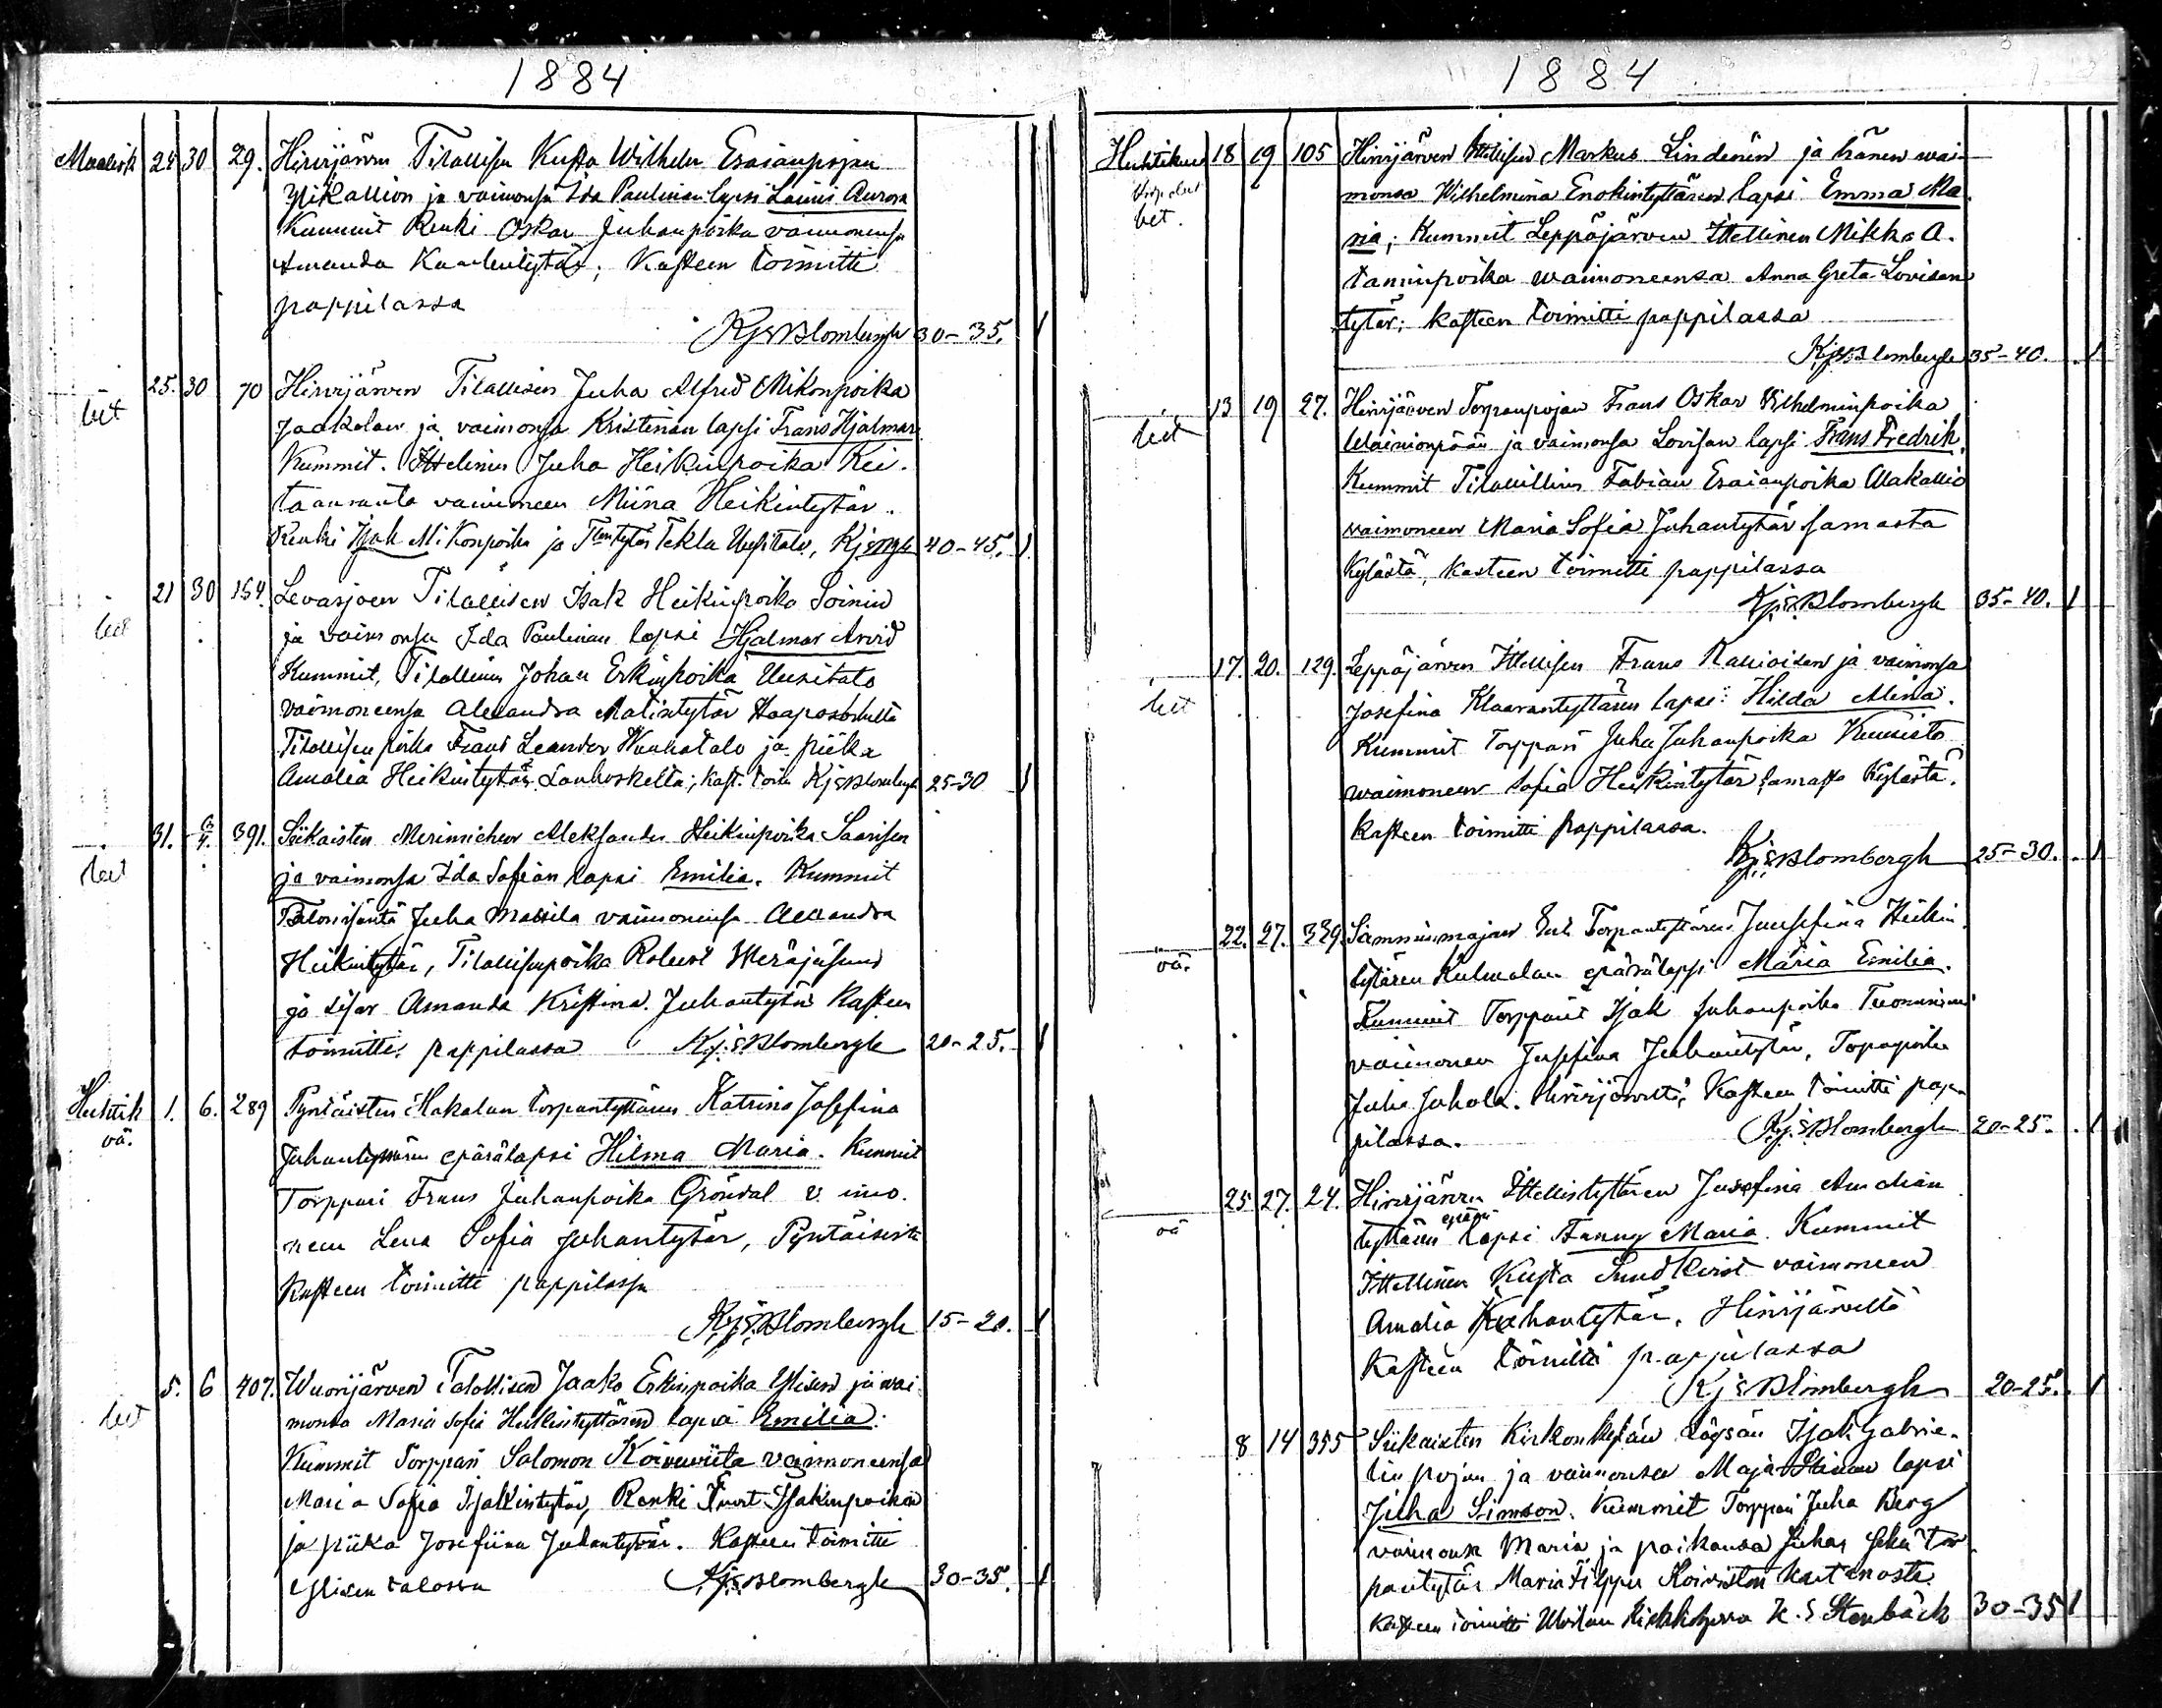 1884
Maalisk 24 30 29. Hirvijärven Tilallisen Kusta Wilhelm Esaianpojan
Ylikallion ja vaimonsa Ida Paulinan lapsi Laimi Aurora
Kummit Renki Oskar Juhanpoika vaimonensa
Amanda Kaarlentytär; Kasteen toimitti
pappilassa
KjESBlombergh 30-35. 1
25. 30 70 Hirvijärven Tilallisen Juha Alfred Mikonpoika
Jaakolan ja vaimonsa Kristiinan lapsi Frans Hjalmar
Kummit. Ittelinen Juha Heikinpoika Kei-
taanranta vaimoneen Miina Heikintytär.
Renki Isak Mikonpoika ja Tekla Uusitalo, 40-45. 1
21 30 154. Levasjoen Tilallisen Isak Heikinpoika Soinin
ja vaimonsa Ida Paulinan lapsi Hjalmar Arvid
Kummit, Tilallinen Johan Erkinpoika Uusitalo
vaimoneensa Alexandra Matintytär
Tilallisen poika Frans Leander ja piika
Amalia Heikintytär Lauhoskelta; Kast. toim KjSBlombergh 25-30 1
31. 391. Siikaisten Merimiehen Aleksander Heikinpoika Saarisen
ja vaimonsa Ida Sofian lapsi Emilia. Kummit
Talonisäntä Juha Massila vaimonensa Alexandra
Heikintytär, Tilallisenpoika Robert
ja sisar Amanda Kristina Juhantytär Kasteen
toimitti pappilassa KjSBlombergh 20-25. 1
Huhtik 1. 6. 289 Pyntäisten Hakalan torpantyttären Katrina Josefina
vä. Juhantyttären epärälapsi Hilma Maria. Kummit
Torppari Frans Juhanpoika Gröndal v imo.
neen Lena Sofia Juhantytär, Pyntäisistä
Kasteen toimitti pappilassa
KjSBlombergh 15-20. 1
5. 6 407. Wuorijärven Talollisen Jaako Erkinpoika Ylisen ja vai
monsa Maria Sofia Heikintyttären lapsi Emilia.
Kummit Torppari Salomon Koivuviita vaimoneensa
Maria Sofia Isakintytär, Renki Isakinpoika
ja piika Josefiina Juhantytär. Kasteen toimitti
Ylisen talossa KjSBlombergh 30-35. 1
1884
Huhtikuu 18 19 105 Hirvijärven Ittellisen Markus Lindenin ja hänen wai
monsa Wilhelmina Enokintyttären lapsi Emma Ma
ria; Kummit Leppäjärven Ittellinen Mikko A.
taminpoika waimoneensa Anna Greta Lovisan
tytär; kasteen toimitti pappilassa
KjSBlombergh 35-40. 1
13 19 27. Hirvijärven Torpanpojan Frans Oskar Vilhelminpoika
Wainionpään ja vaimonsa Lovisan lapsi Frans Fredrik.
Kummit Tilallinen Fabian Esaianpoika Alakallio
vaimoneen Maria Sofia Juhantytär samasta
Kylästä, kasteen toimitti pappilassa
KjSBlombergh 35-40. 1
17. 20. 129. Leppäjärven Ittellisen Frans Kallioisen ja vaimonsa
Josefina Klaarantyttären lapsi: Hilda Alina.
Kummit Torppari Juha Juhanpoika Kuusisto
waimoneen Sofia Heikintytär samasta Kylästä.
Kasteen toimitti pappilassa.
KjSBlombergh 25-30. 1
vä. 22. 27. 339. Sammin Torpantyttären Juusefiina Heikin
tyttären Kulmalan epärälapsi Maria Emilia.
Kummit Torppari Isak Juhanpoika
vaimoneen Josefina Juhantytär,
Juha Juhola. Hirvijärveltä, Kasteen toimitti pap-
pilassa. KjSBlombergh 20-25. 1
vä 25 27. 24. Hirvijärven Ittellistyttären Josefina Amalian
tyttären epärä lapsi Fanny Maria. Kummit
Ittellinen Kusta Sundkvist vaimoneen
Amalia Hirvijärveltä
Kasteen toimitti pappilassa
KjSBlombergh 20-25. 1
8 14 355 Siikaisten Kirkonkylän Isak Gabrie-
lin pojan ja vaimonsa Maja lapsi
Juha Simson. Kummit Torppari Juha Berg
vaimonsa Maria ja poikansa Juha sekä tor
pantytär Maria Koiviston
Kasteen toimitti K. S Stenbäck 30-35 1